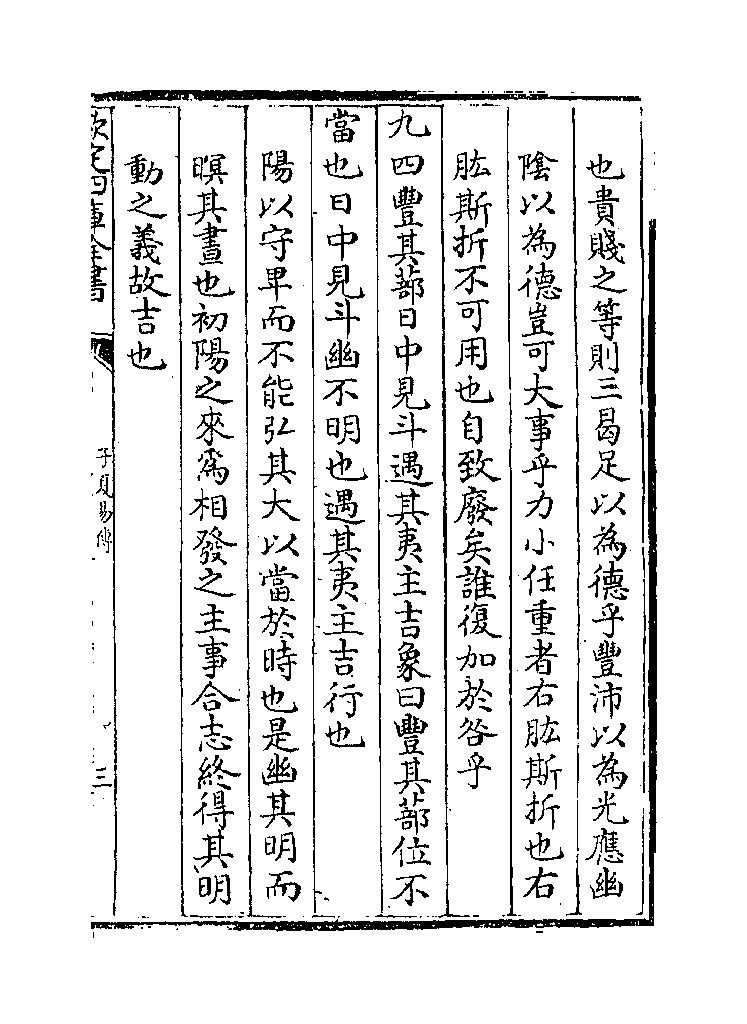 也貴賤之等則三曷足以為德乎豐沛以為光應幽
陰以為德豈可大事乎力小任重者右肱斯折也右
肱斯折不可用也自致廢矣誰復加於咎乎
九四豐其蔀日中見斗遇其夷主吉象曰豐其蔀位不
當也日中見斗幽不明也遇其夷主吉行也
陽以守卑而不能弘其大以當於時也是幽其明而
暝其晝也初陽之來為相發之主事合志終得其明
動之義故吉也
欽定四庫全書
子夏易傳
三